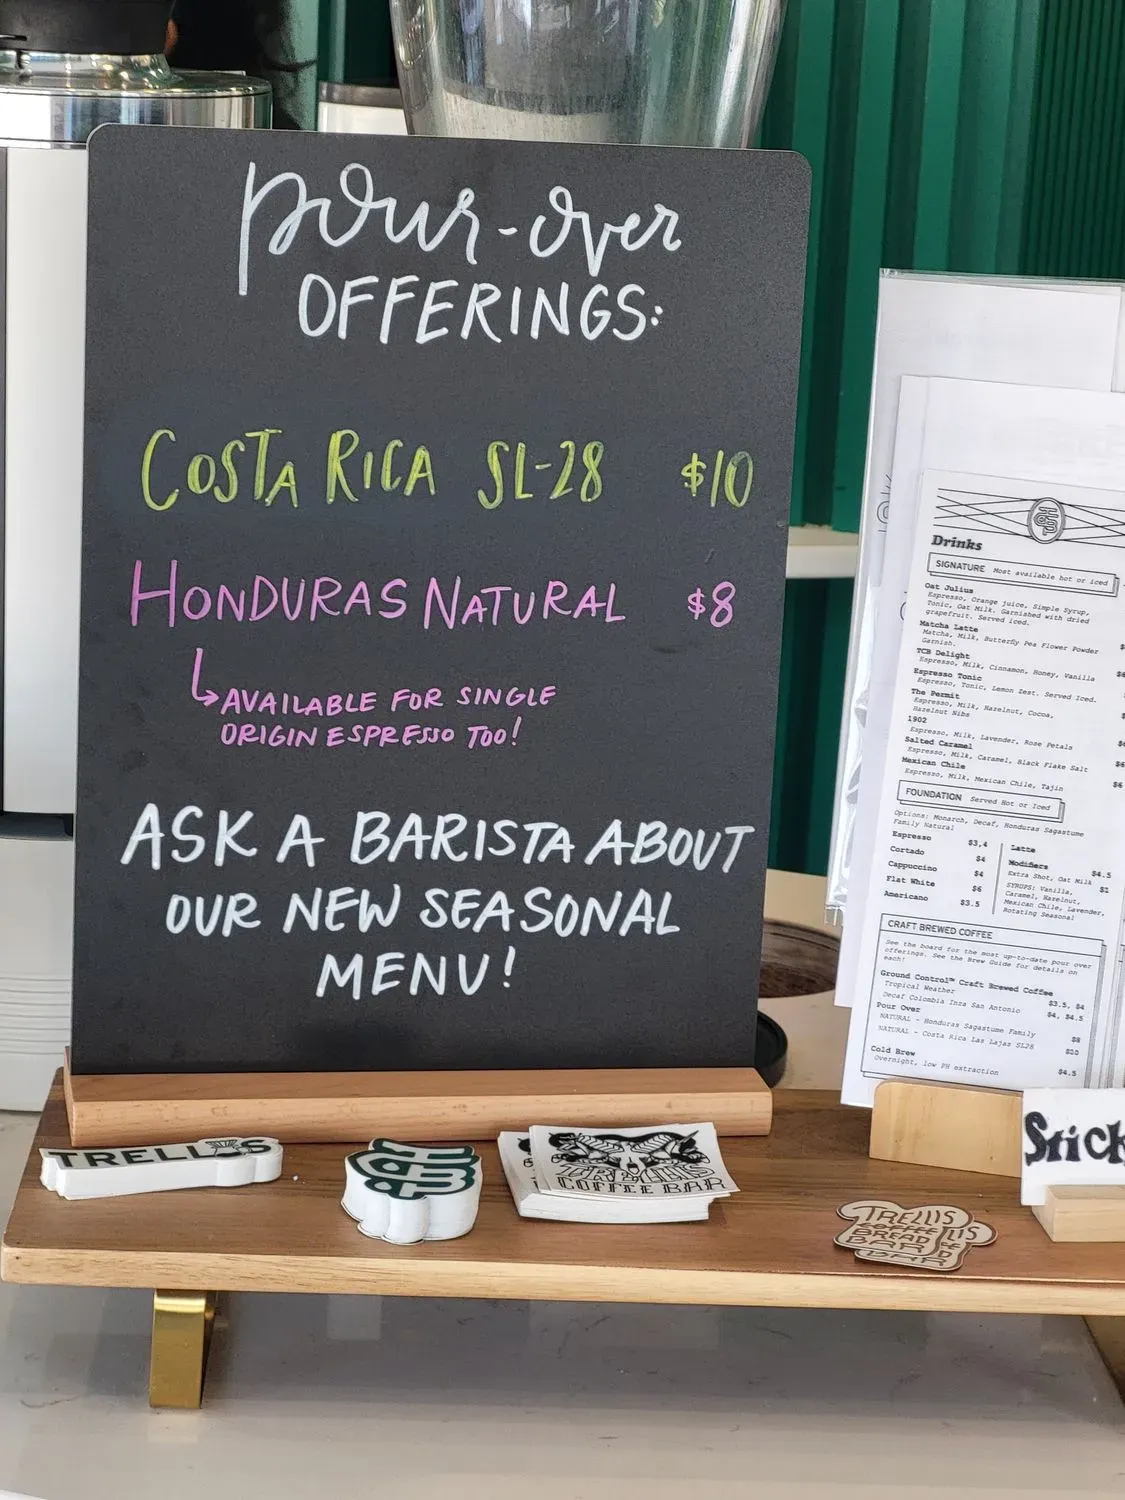 pour-over
OFFERINGS:
COSTA RICA SL-28 $10
HONDURAS NATURAL $8
AVAILABLE FOR SINGLE
ORIGIN ESPRESSO TOO!
ASK A BARISTA ABOUT
OUR NEW SEASONAL
MENU!
Drinks
SIGNATURE Most available hot or iced
Oat Julius
Espresso, Orange juice, Simple Syrup,
Tonic, Oat Milk. Garnished with dried
grapefruit. Served iced.
Matcha Latte
Matcha, Milk, Butterfly Pea Flower Powder
Garnish.
TCB Delight
Espresso, Milk, Cinnamon, Honey, Vanilla
Espresso Tonic
Espresso, Tonic, Lemon Zest. Served Iced.
The Permit
Espresso, Milk, Hazelnut, Cocoa,
Hazelnut Nibs
1902
Espresso, Milk, Lavender, Rose Petals
Salted Caramel
Espresso, Milk, Caramel, Black Flake Salt
Mexican Chile
Espresso, Milk, Mexican Chile, Tajin
FOUNDATION Served Hot or Iced
Options: Monarch, Decaf, Honduras Sagastume
Family Natural
Espresso $3,4
Cortado $4
Cappuccino $4
Flat White $6
Americano $3.5
Latte $4.5
Modifiers
Extra Shot, Oat Milk $1
SYRUPS: Vanilla,
Caramel, Hazelnut,
Mexican Chile, Lavender,
Rotating Seasonal
CRAFT BREWED COFFEE
See the board for the most up-to-date pour over
offerings. See the Brew Guide for details on
each!
Ground Control™ Craft Brewed Coffee
Tropical Weather $3.5, $4
Decaf Colombia Inza San Antonio $4, $4.5
Pour Over
NATURAL - Honduras Sagastume Family $8
NATURAL - Costa Rica Las Lajas SL28 $10
Cold Brew
Overnight, low PH extraction $4.5
TRELLIS
TRELLIS
COFFEE BAR
TRELLIS
COFFEE
BREAD
BAR
Stick